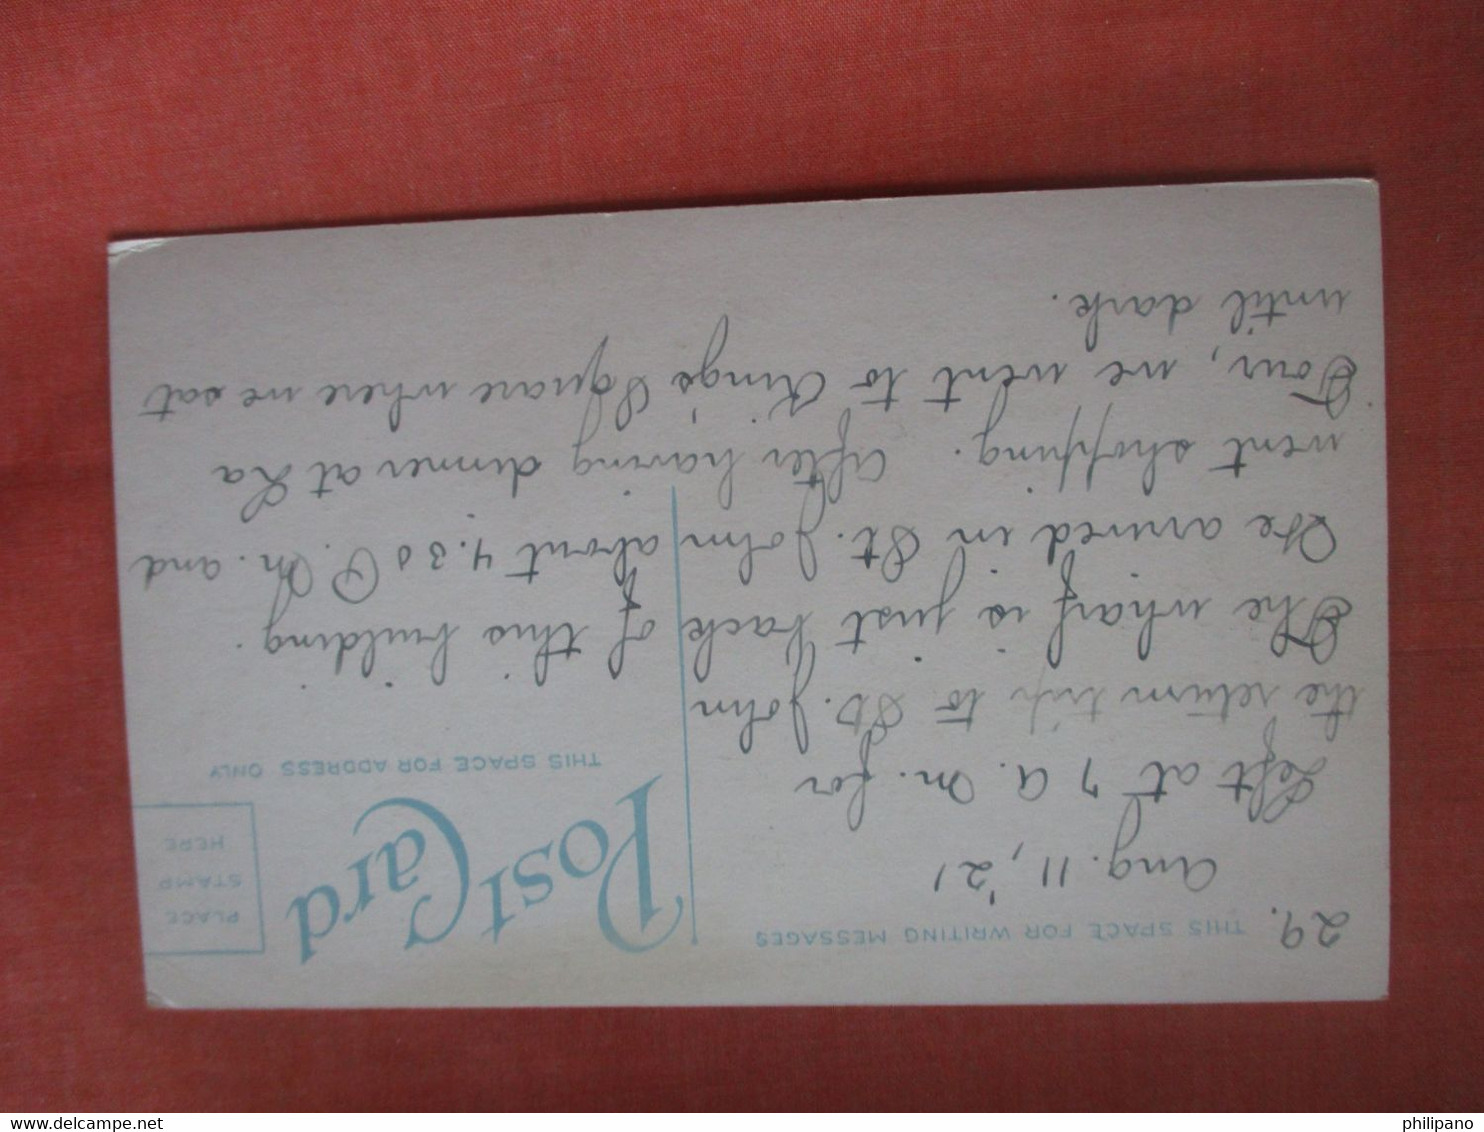 29.
THIS SPACE FOR WRITING MESSAGES
Aug. 11, '21
Left at 7 A. M. for
the return trip to St. John
The wharf is just back of this building.
We arrived in St. John about 4.30 P. M. and
went shopping. After having dinner at La
Tour, we went to King's Square where we sat
until dark.
Post Card
THIS SPACE FOR ADDRESS ONLY
PLACE
STAMP
HERE
delcampe.net
philipano